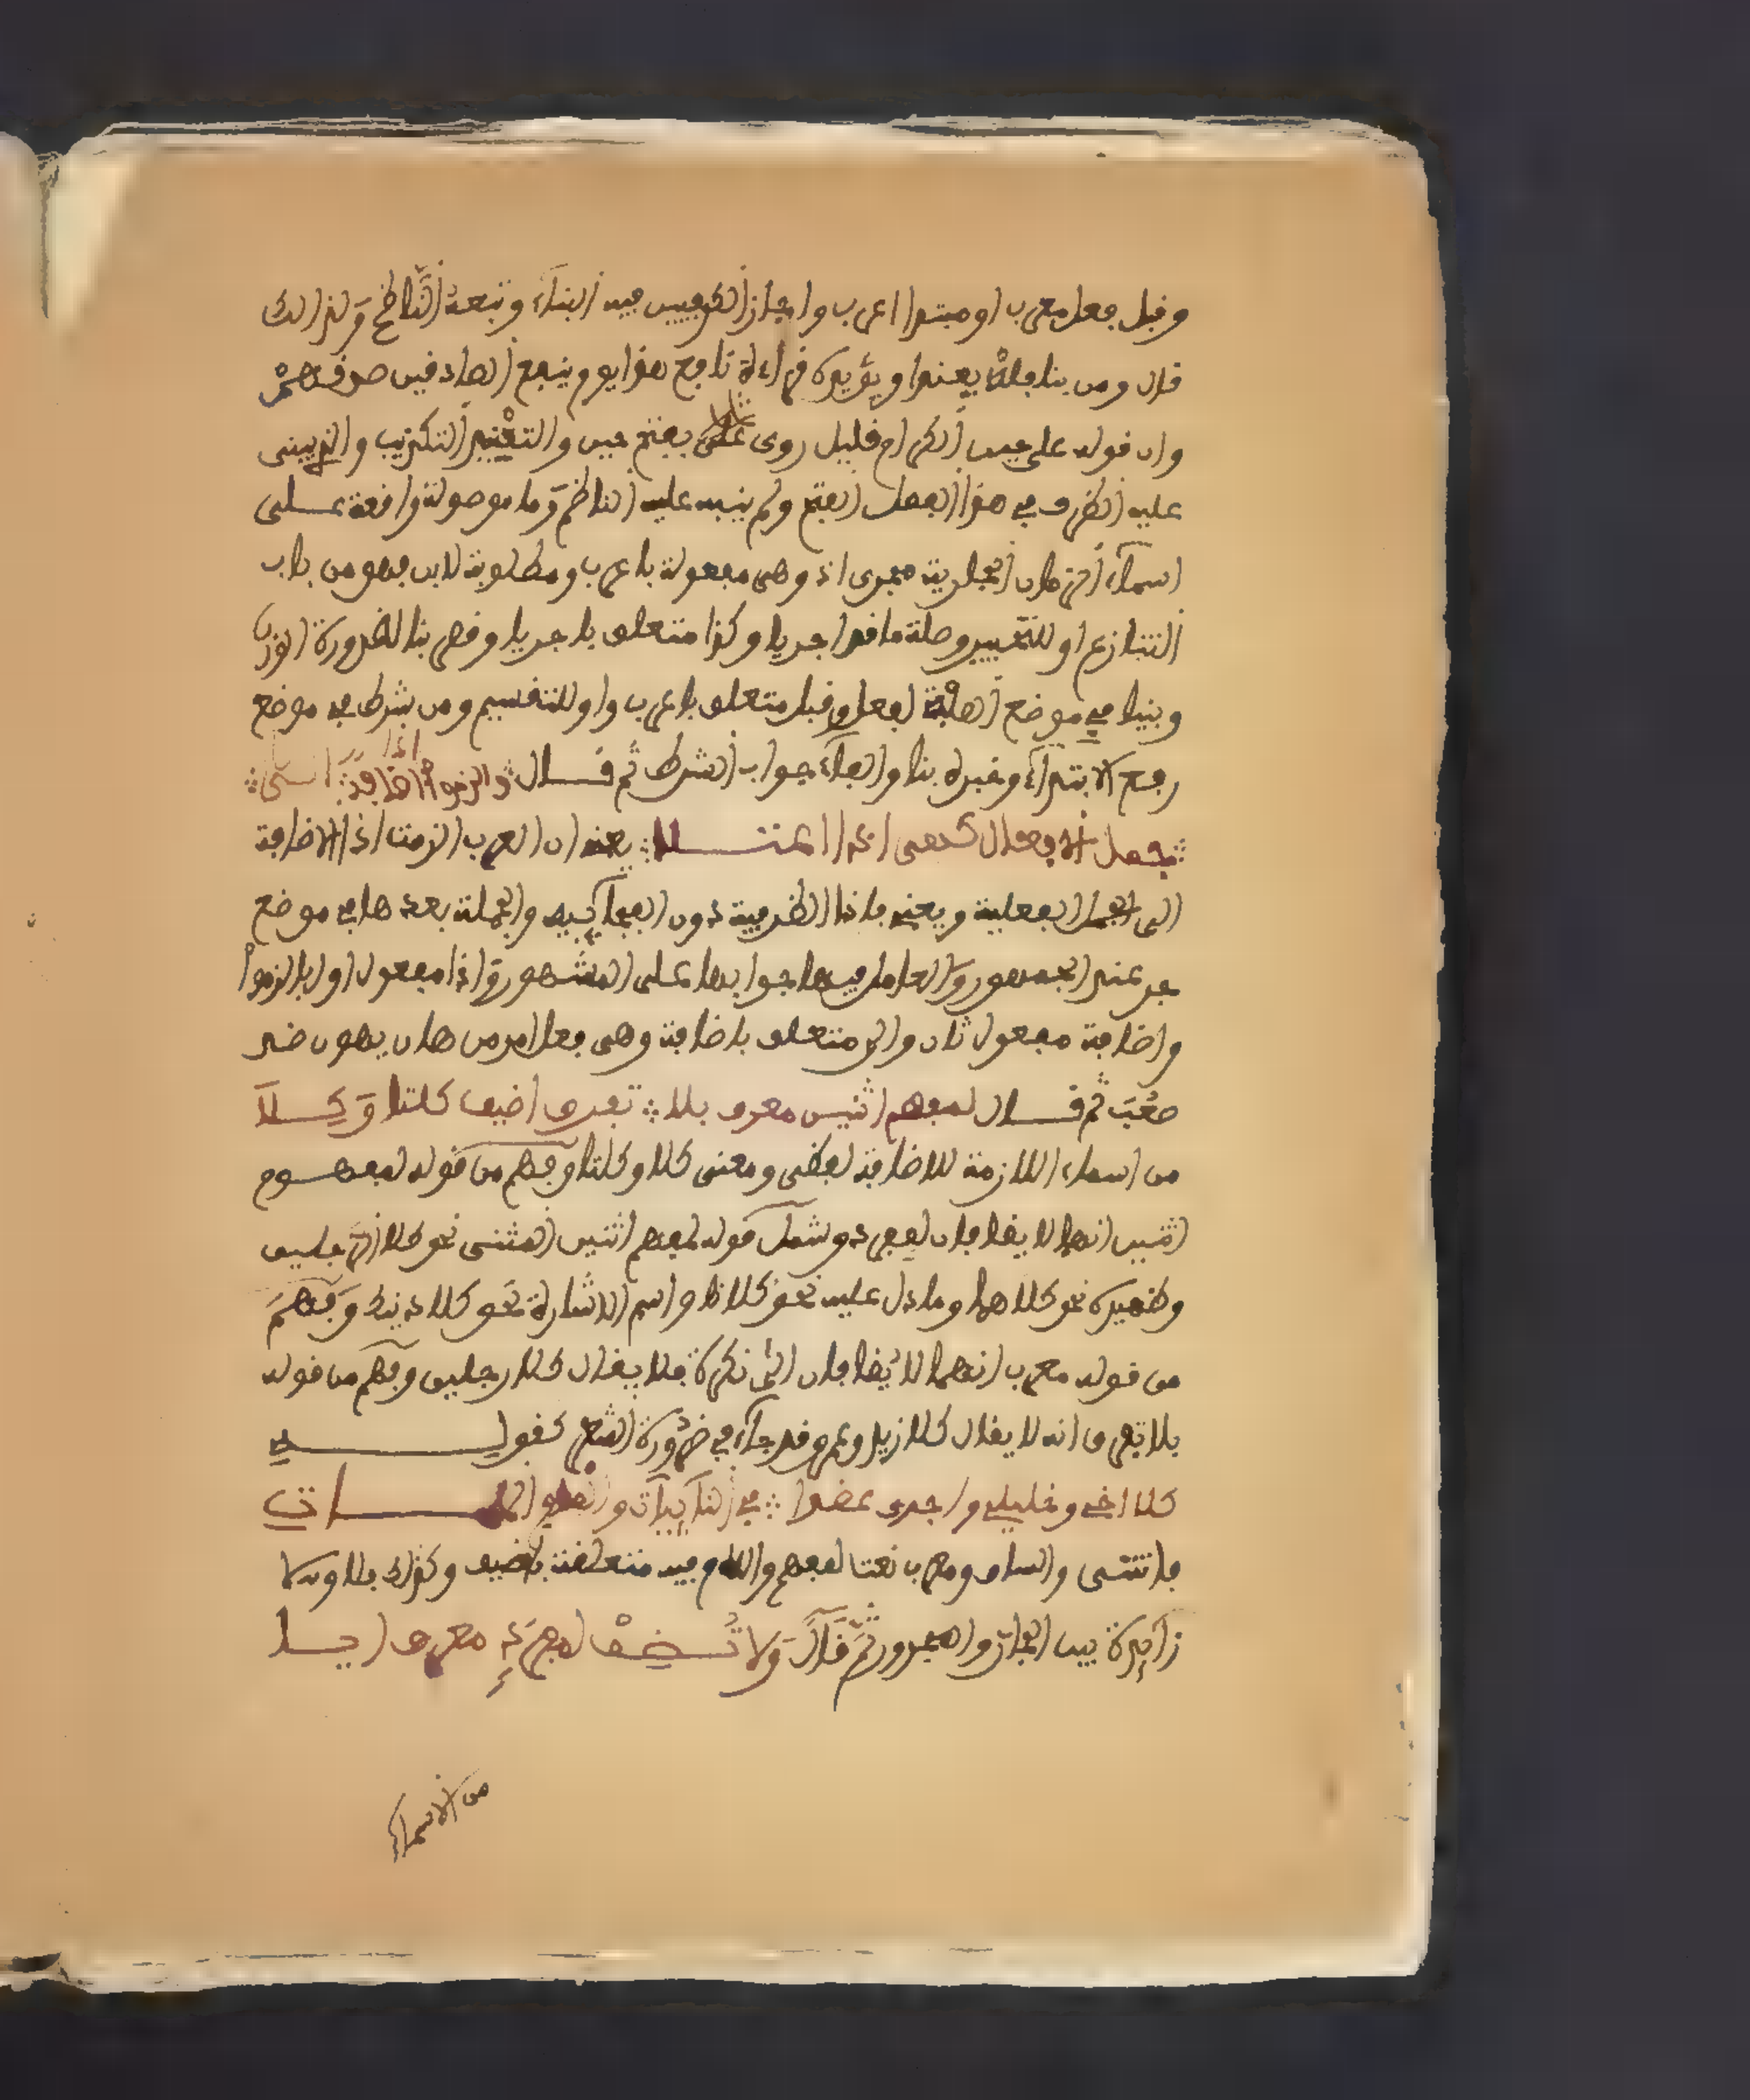 وقبل فعل معرب او مبتدا اعرب واجاز الكوفيين فيه البناء وتبعه الناظم ولذالك
قال ومن بنا فلن يفندا ويؤيده قراءة نافع هذا يوم ينفع الصادقين صدقهم
وان قوله على حين الكرام قليل روى على بفتح حين والتفنيد التكذيب والذي بنى
عليه الظرف في هذا الفصل الفتح ولم ينبه عليه الناظم وما موصولة واقعة على
اسماء الزمان الجارية مجرى اذ وهي مفعولة باعرب ومطلوبة لابن فهو من باب
التنازع او للتخيير وصلة ما قد اجريا وكاذ متعلق باجريا وقصر بنا لضرورة الوزن
وبنيا في موضع الصفة لفعل وقبل متعلق باعرب واو للتقسيم ومن شرط في موضع
رفع الابتداء وخبره بنا والفاء جواب الشرط ثم قال والزموا اذا اضافة الى
جمل الافعال كهن اذا اعتلا يعني ان العرب الزمت اذا الاضافة
الى الجمل الفعلية ويعني باذا الظرفية دون الفجائية والجملة بعدها في موضع
جر عند الجمهور والعامل فيها جوابها على المشهور واذا مفعول اول بالزموا
واضافة مفعول ثان والى متعلق باضافة وهن فعل امر من هان يهون ضد
صعب ثم قال لمفهم اثنين معرف بلا تفرق اضيف كلتا وكلا
من اسماء اللازمة للاضافة لفظى ومعنى كلا وكلتا وفهم من قوله لمفهم
اثنين انهما لا يضافان لمفرد وشمل قوله لمفهم اثنين المثنى نحو كلا الرجلين
وضميره نحو كلاهما وما دل عليه نحو كلانا واسم الاشارة نحو كلا ذينك وفهم
من قوله معرب انهما لا يضافان الى نكرة فلا يقال كلا رجلين وفهم من قوله
بلا تفرق انه لا يقال كلا زيد وعمرو وقد جاء في ضرورة الشعر كقوله
كلا اخي وخليلي واجدى عضدا في النائبات والمام الملمات
فانتنى والساق ومعرب نعت لمفهم واللام فيه متعلقة باضيف وكذلك بلا ولا
زائدة بين الجار والمجرور ثم قال ولا تضف لمفرد معرف ايا
من الاسماء